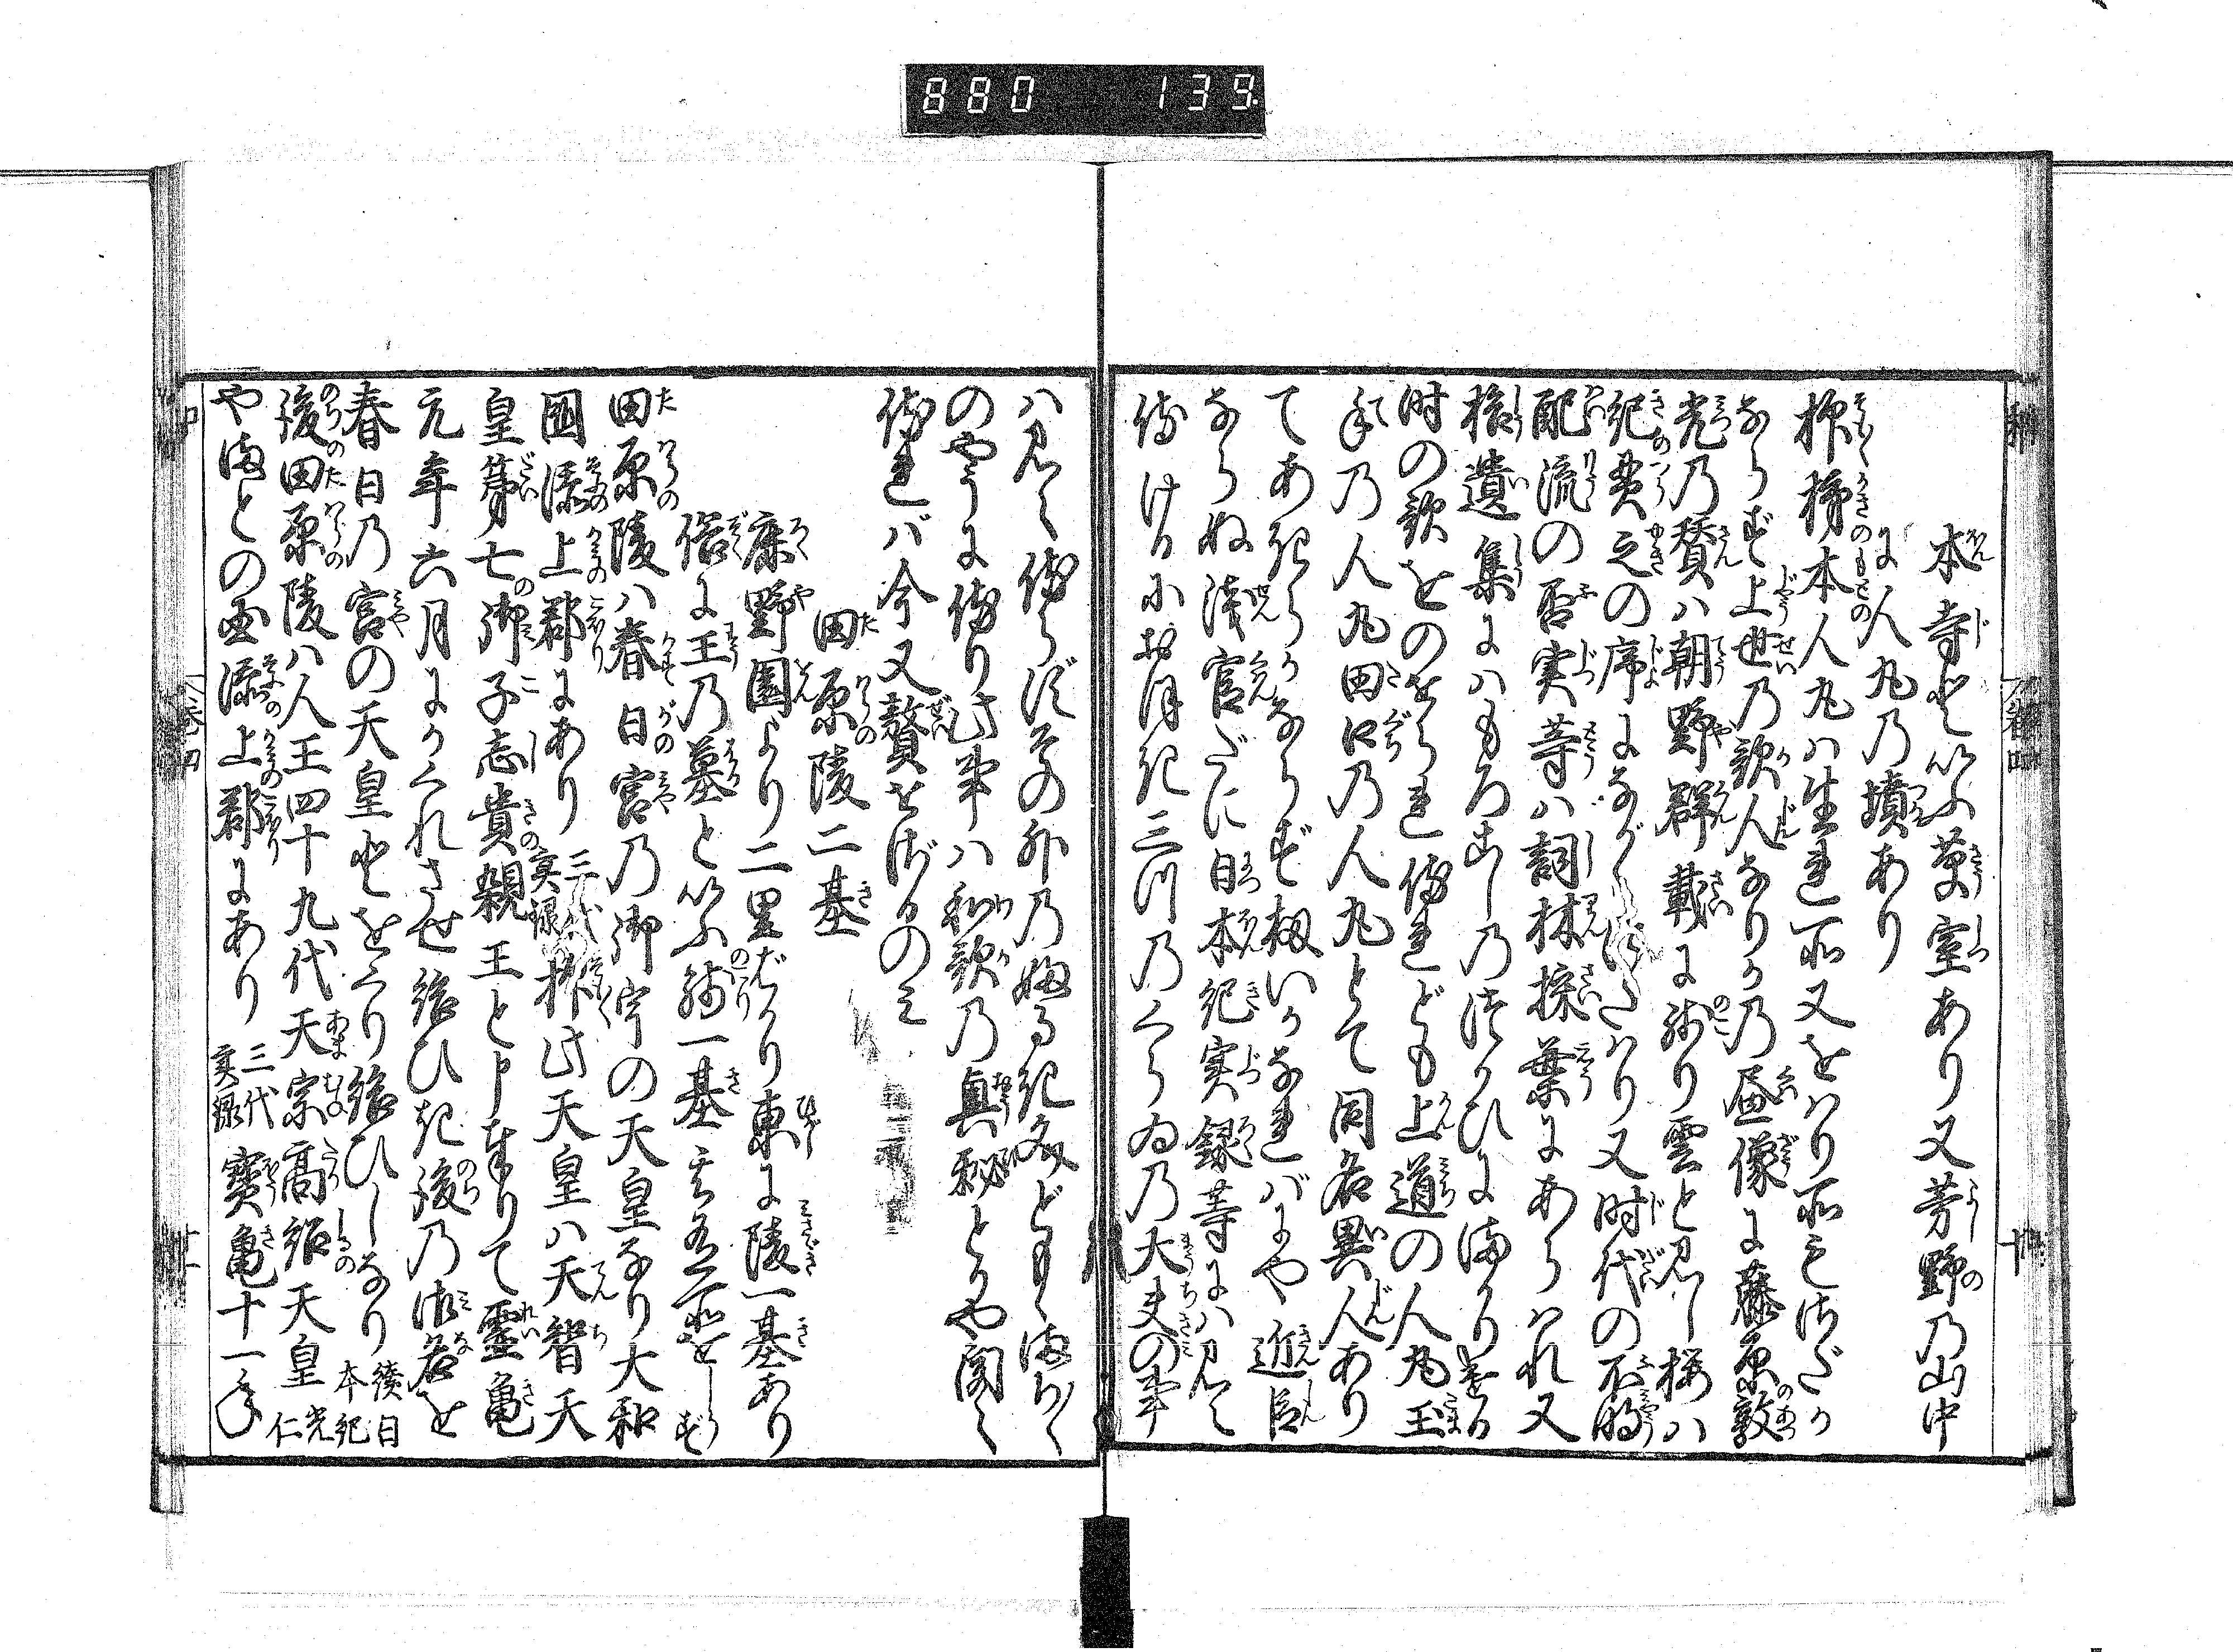 880 139
本寺といふ草室あり又芳野の山中
に人丸乃墳あり
抑柿本人丸ハ生れ所又をハり所もさだか
ならず上世乃歌人なりか乃画像に藤原敦
光乃賛ハ朝野群載に残り雲と見し桜ハ
紀貫之の序にながくつたハり又时代の不明
配流の否実等ハ詞林採葉にあらハれ又
拾遺集にハもろこし乃つかひにまかりける
时の歌をのせられ侍れども上道の人丸玉
手乃人丸田口乃人丸とて同名異人あり
てあきらかならず扨いかなれバにや近臣
ならぬ浅官だに日本紀実録等にハ見え
侍けるにおほき三川乃くらゐ乃大夫の事
ハ見え侍らずその外乃
のやうに侍り此事ハ和歌乃奥秘とかや聞え
侍れバ今又贅せざるのミ
田原陵二基
鹿野園より二里ばかり東に陵一基あり
俗に王乃墓といふ残一基ハ其所をしらず
田原陵ハ春日宮乃御宇の天皇なり大和
国添上郡にあり三代実録抑此天皇ハ天智天
皇第七御子志貴親王と申奉りて霊亀
元年六月にかくれさせ給ひき後乃御名を
春日乃宮の天皇とをくり給ひしなり續日本紀
後田原陵ハ人王四十九代天宗高紹天皇光仁
やまとの国添上郡にあり三代実録宝亀十一年
巻四
十
十一